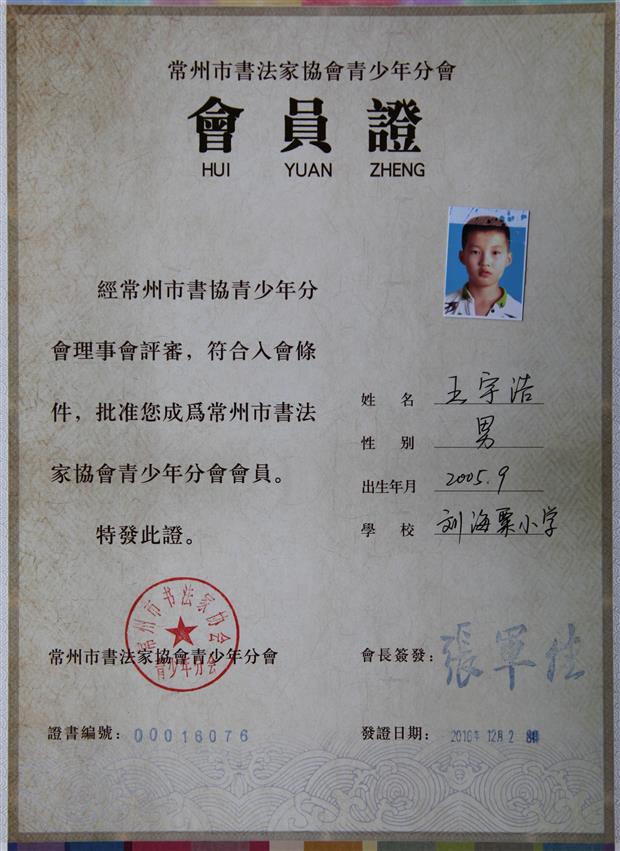 常州市書法家協會青少年分會
會員證
HUI YUAN ZHENG
經常州市書協青少年分
會理事會評審，符合入會條
件，批准您成爲常州市書法
家協會青少年分會會員。
特發此證。
姓 名 王宇浩
性 別 男
出生年月 2005.9
學 校 刘海粟小学
常州市书法家协会
青少年分会
常州市書法家協會青少年分會
會長簽發：
證書編號：00016076
發證日期：2016年 12月 2